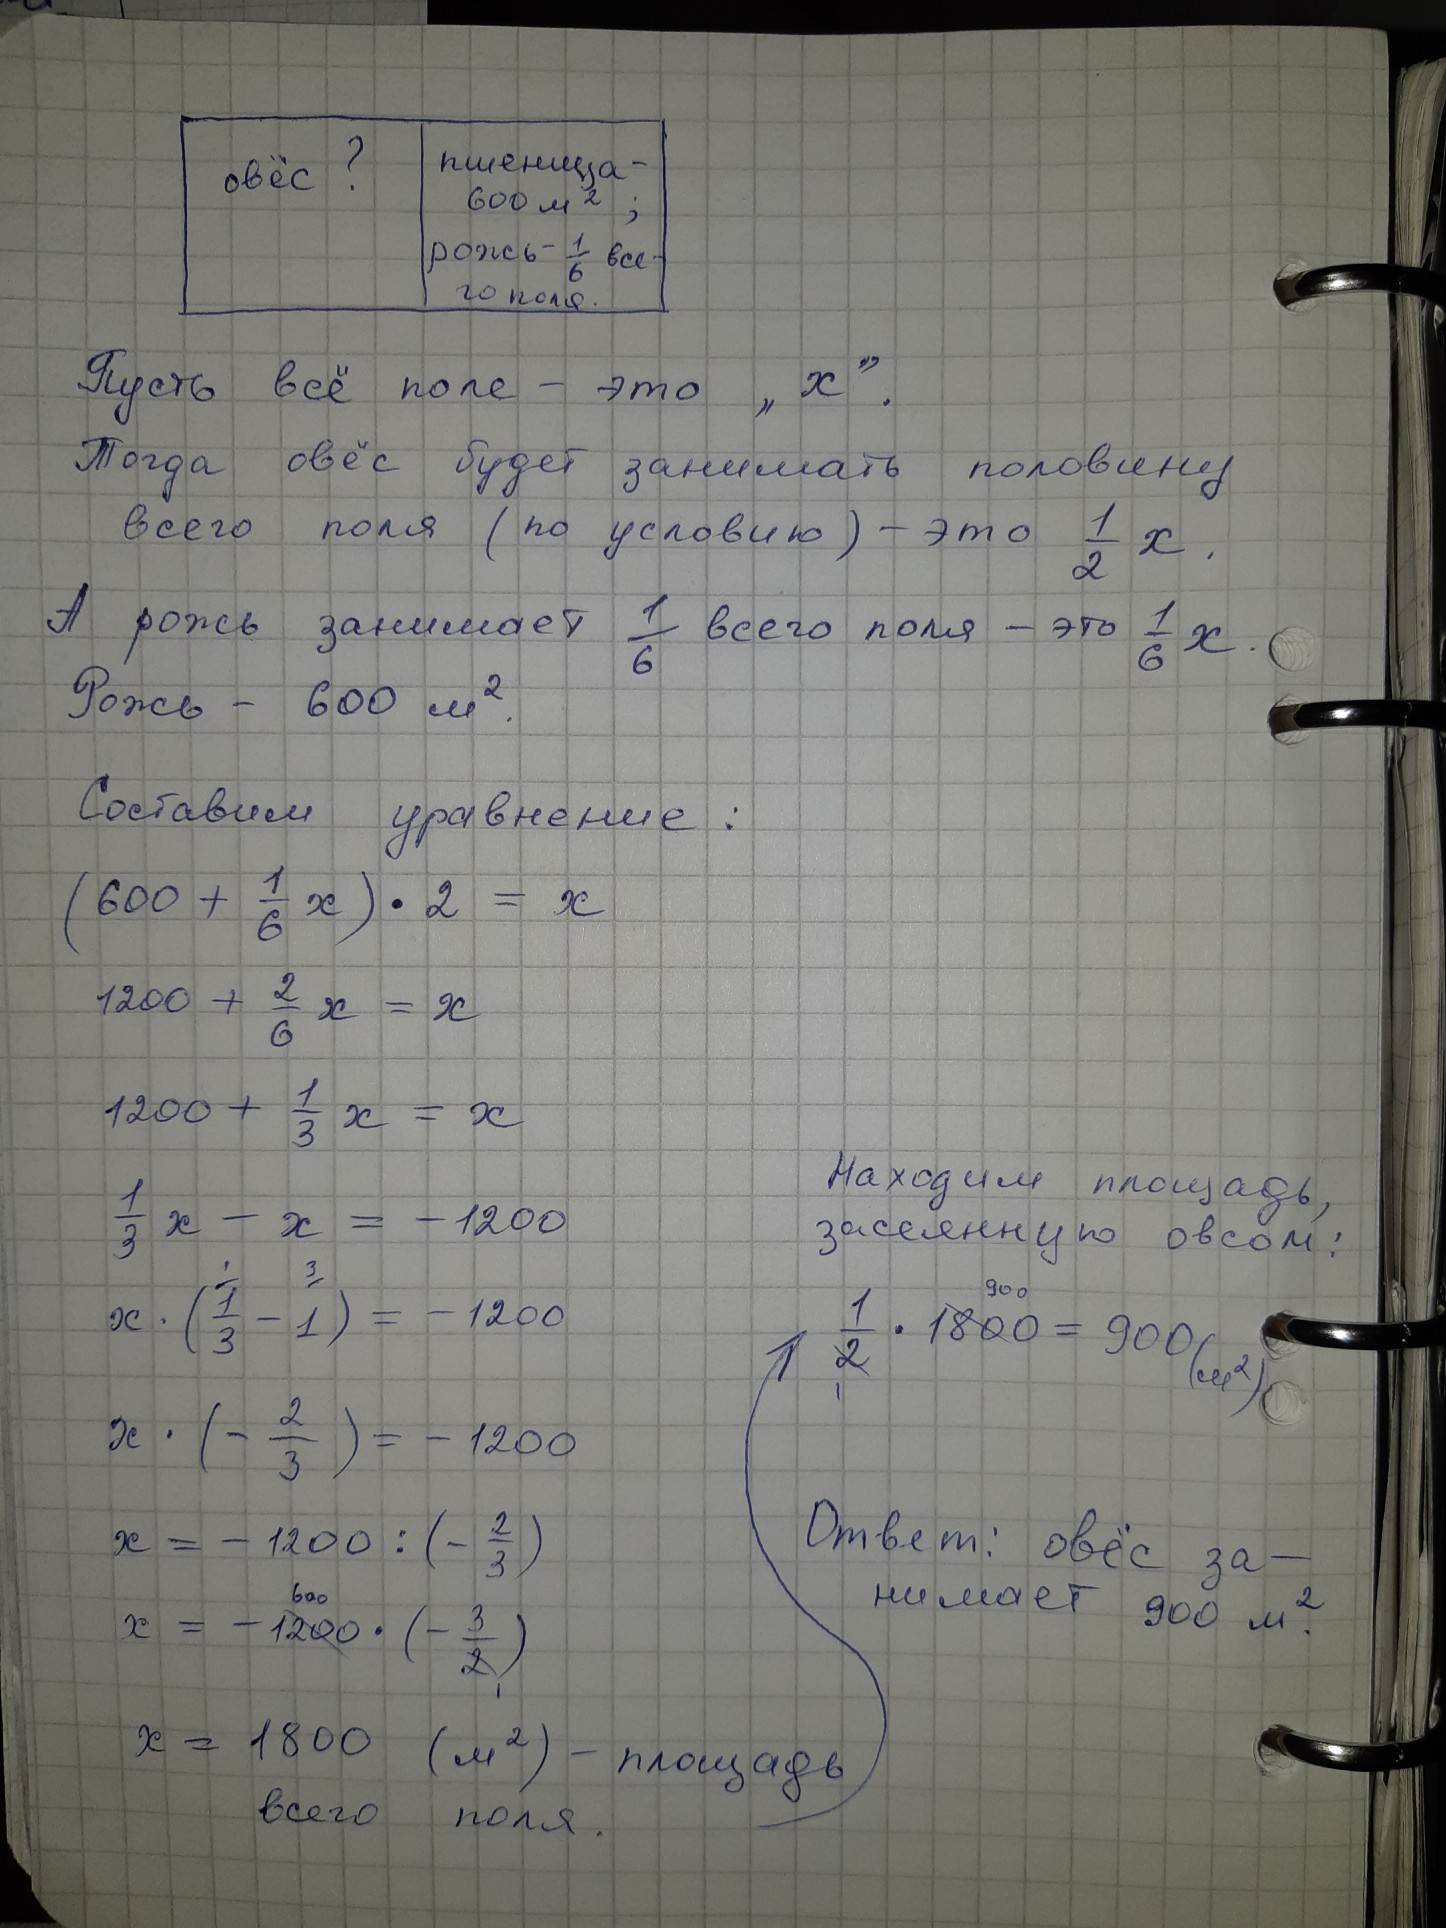 овёс ?
пшеница -
600 м² ;
рожь - 1/6 все-
го поля.
Пусть всё поле - это „x”.
Тогда овёс будет занимать половину
всего поля (по условию) - это 1/2 x.
А рожь занимает 1/6 всего поля - это 1/6 x.
Рожь - 600 м².
Составим уравнение:
(600 + 1/6 x) · 2 = x
1200 + 2/6 x = x
1200 + 1/3 x = x
1/3 x - x = -1200
1 3
x · (1/3 - 1) = -1200
x · (- 2/3) = -1200
x = -1200 : (- 2/3)
600
x = -1200 · (- 3/2)
1
x = 1800 (м²) - площадь
всего поля.
Находим площадь,
засеянную овсом:
900
1/2 · 1800 = 900 (м²)
1
Ответ: овёс за-
нимает 900 м².